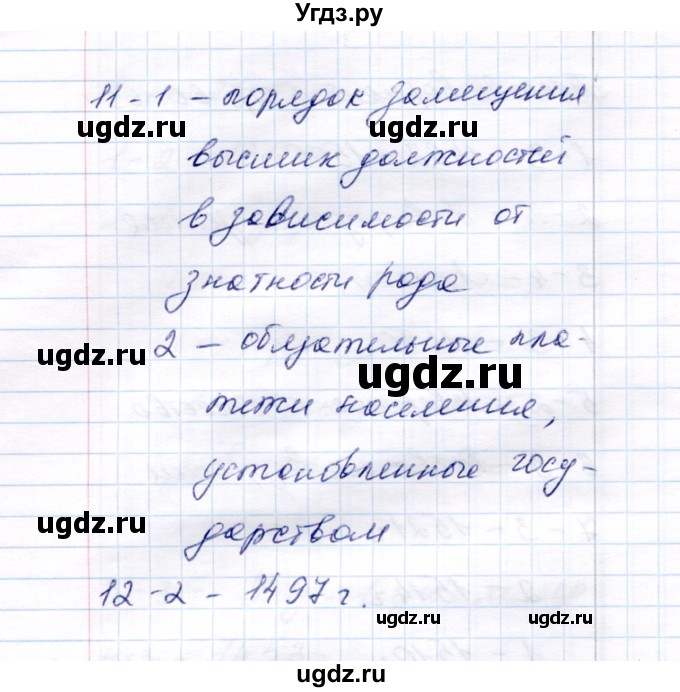 Угдз.ру
11 - 1 - порядок замещения
ugdz.ru ugdz.ru
высших должностей
в зависимости от
знатности рода
2 - обязательные пла-
ugdz.ru ugdz.ru
тежи населения,
установленные госу-
ugdz.ru
дарством
12 - 2 - 1497 г.
ugdz.ru ugdz.ru
ugdz.ru